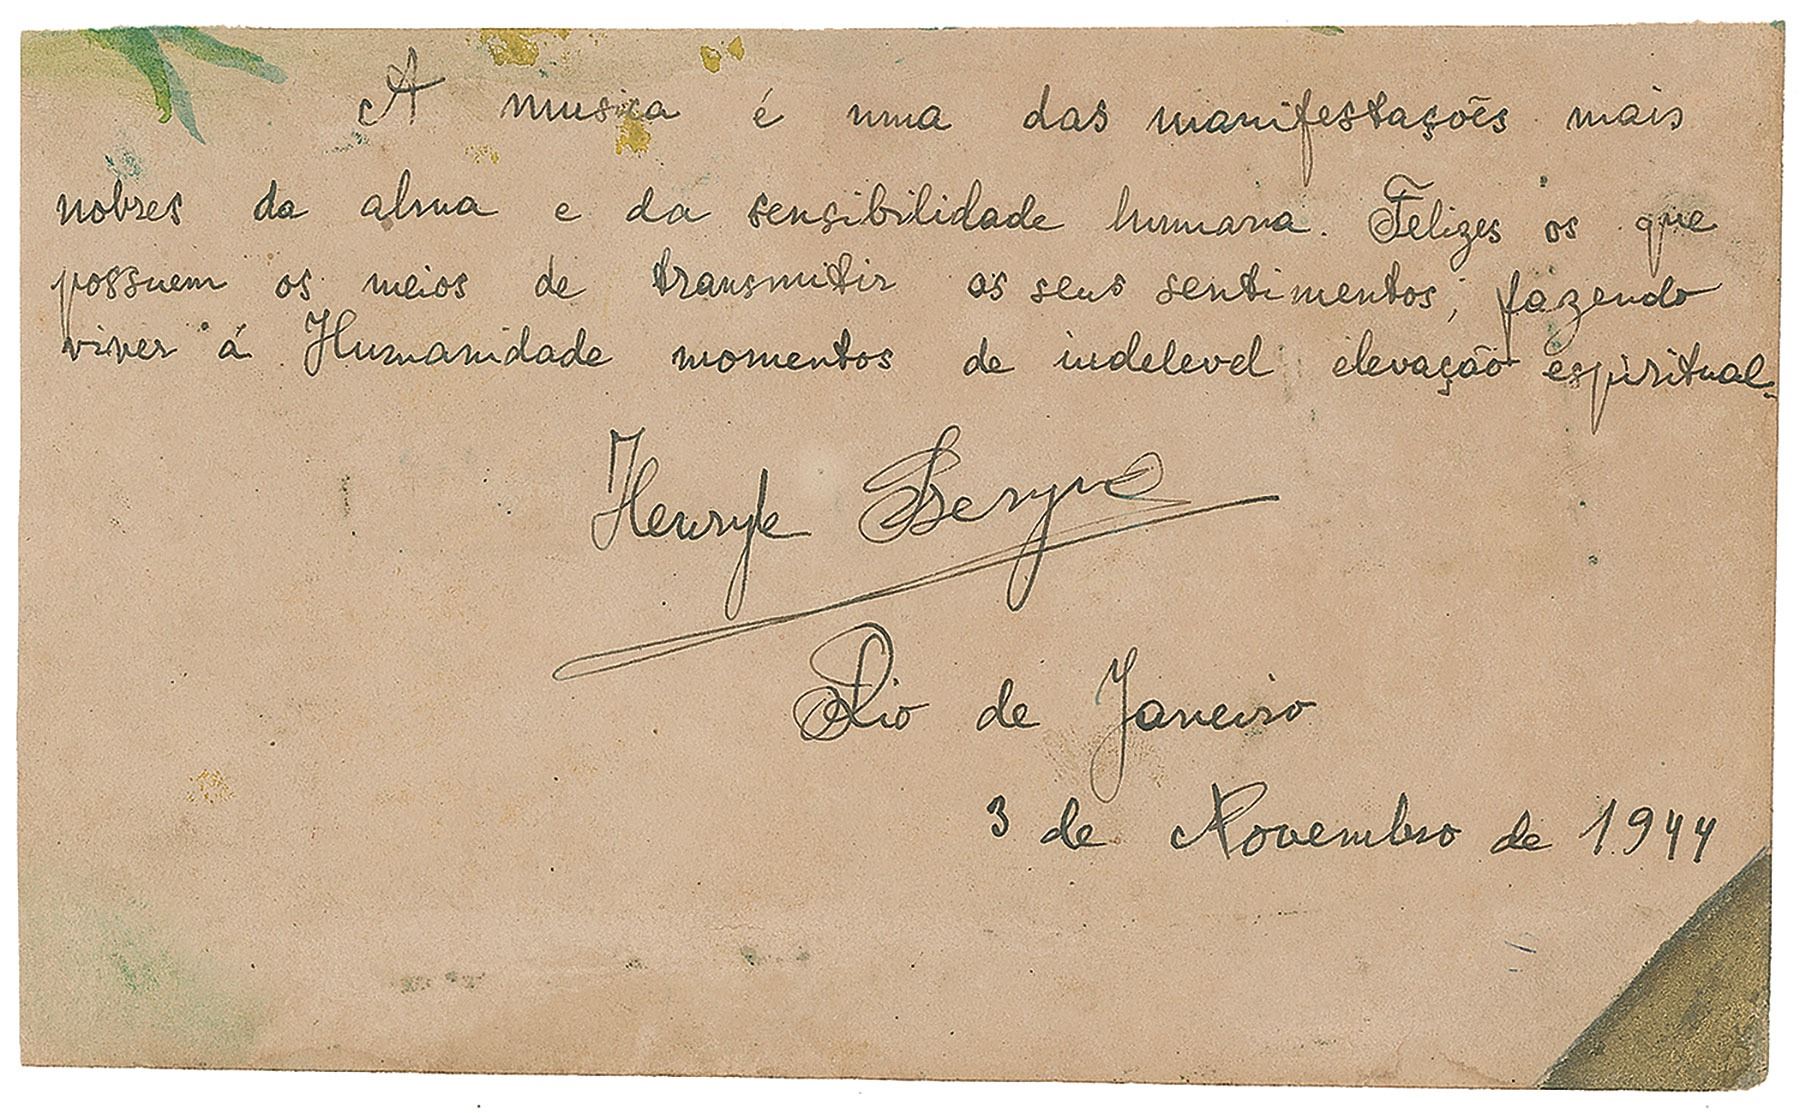 A musica é uma das manifestações mais
nobres da alma e da sensibilidade humana. Felizes os que
possuem os meios de transmitir os seus sentimentos, fazendo
viver á Humanidade momentos de indelevel elevação espiritual.
Rio de Janeiro
3 de Novembro de 1944